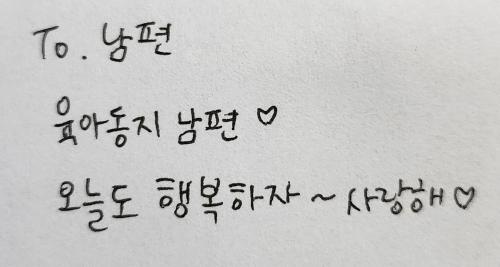 To. 남편
육아동지 남편 ♡
오늘도 행복하자 ~ 사랑해 ♡